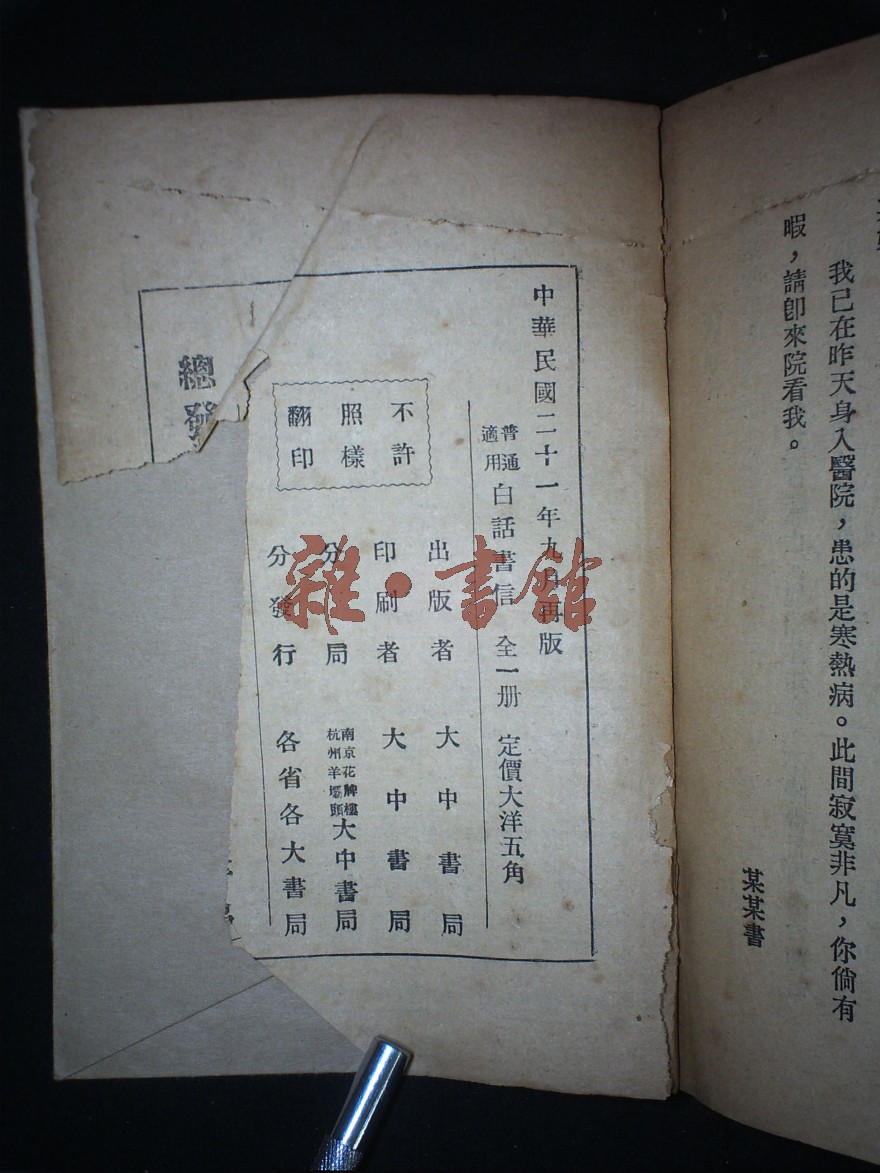 我已在昨天身入醫院，患的是寒熱病。此間寂寞非凡，你倘有
暇，請卽來院看我。
某某書
中華民國二十一年九月再版
普通適用白話書信 全一册 定價大洋五角
不許
照樣
翻印
出版者 大中書局
印刷者 大中書局
分局 南京花牌樓 杭州羊壩頭 大中書局
分發行 各省各大書局
總發
雜·書館